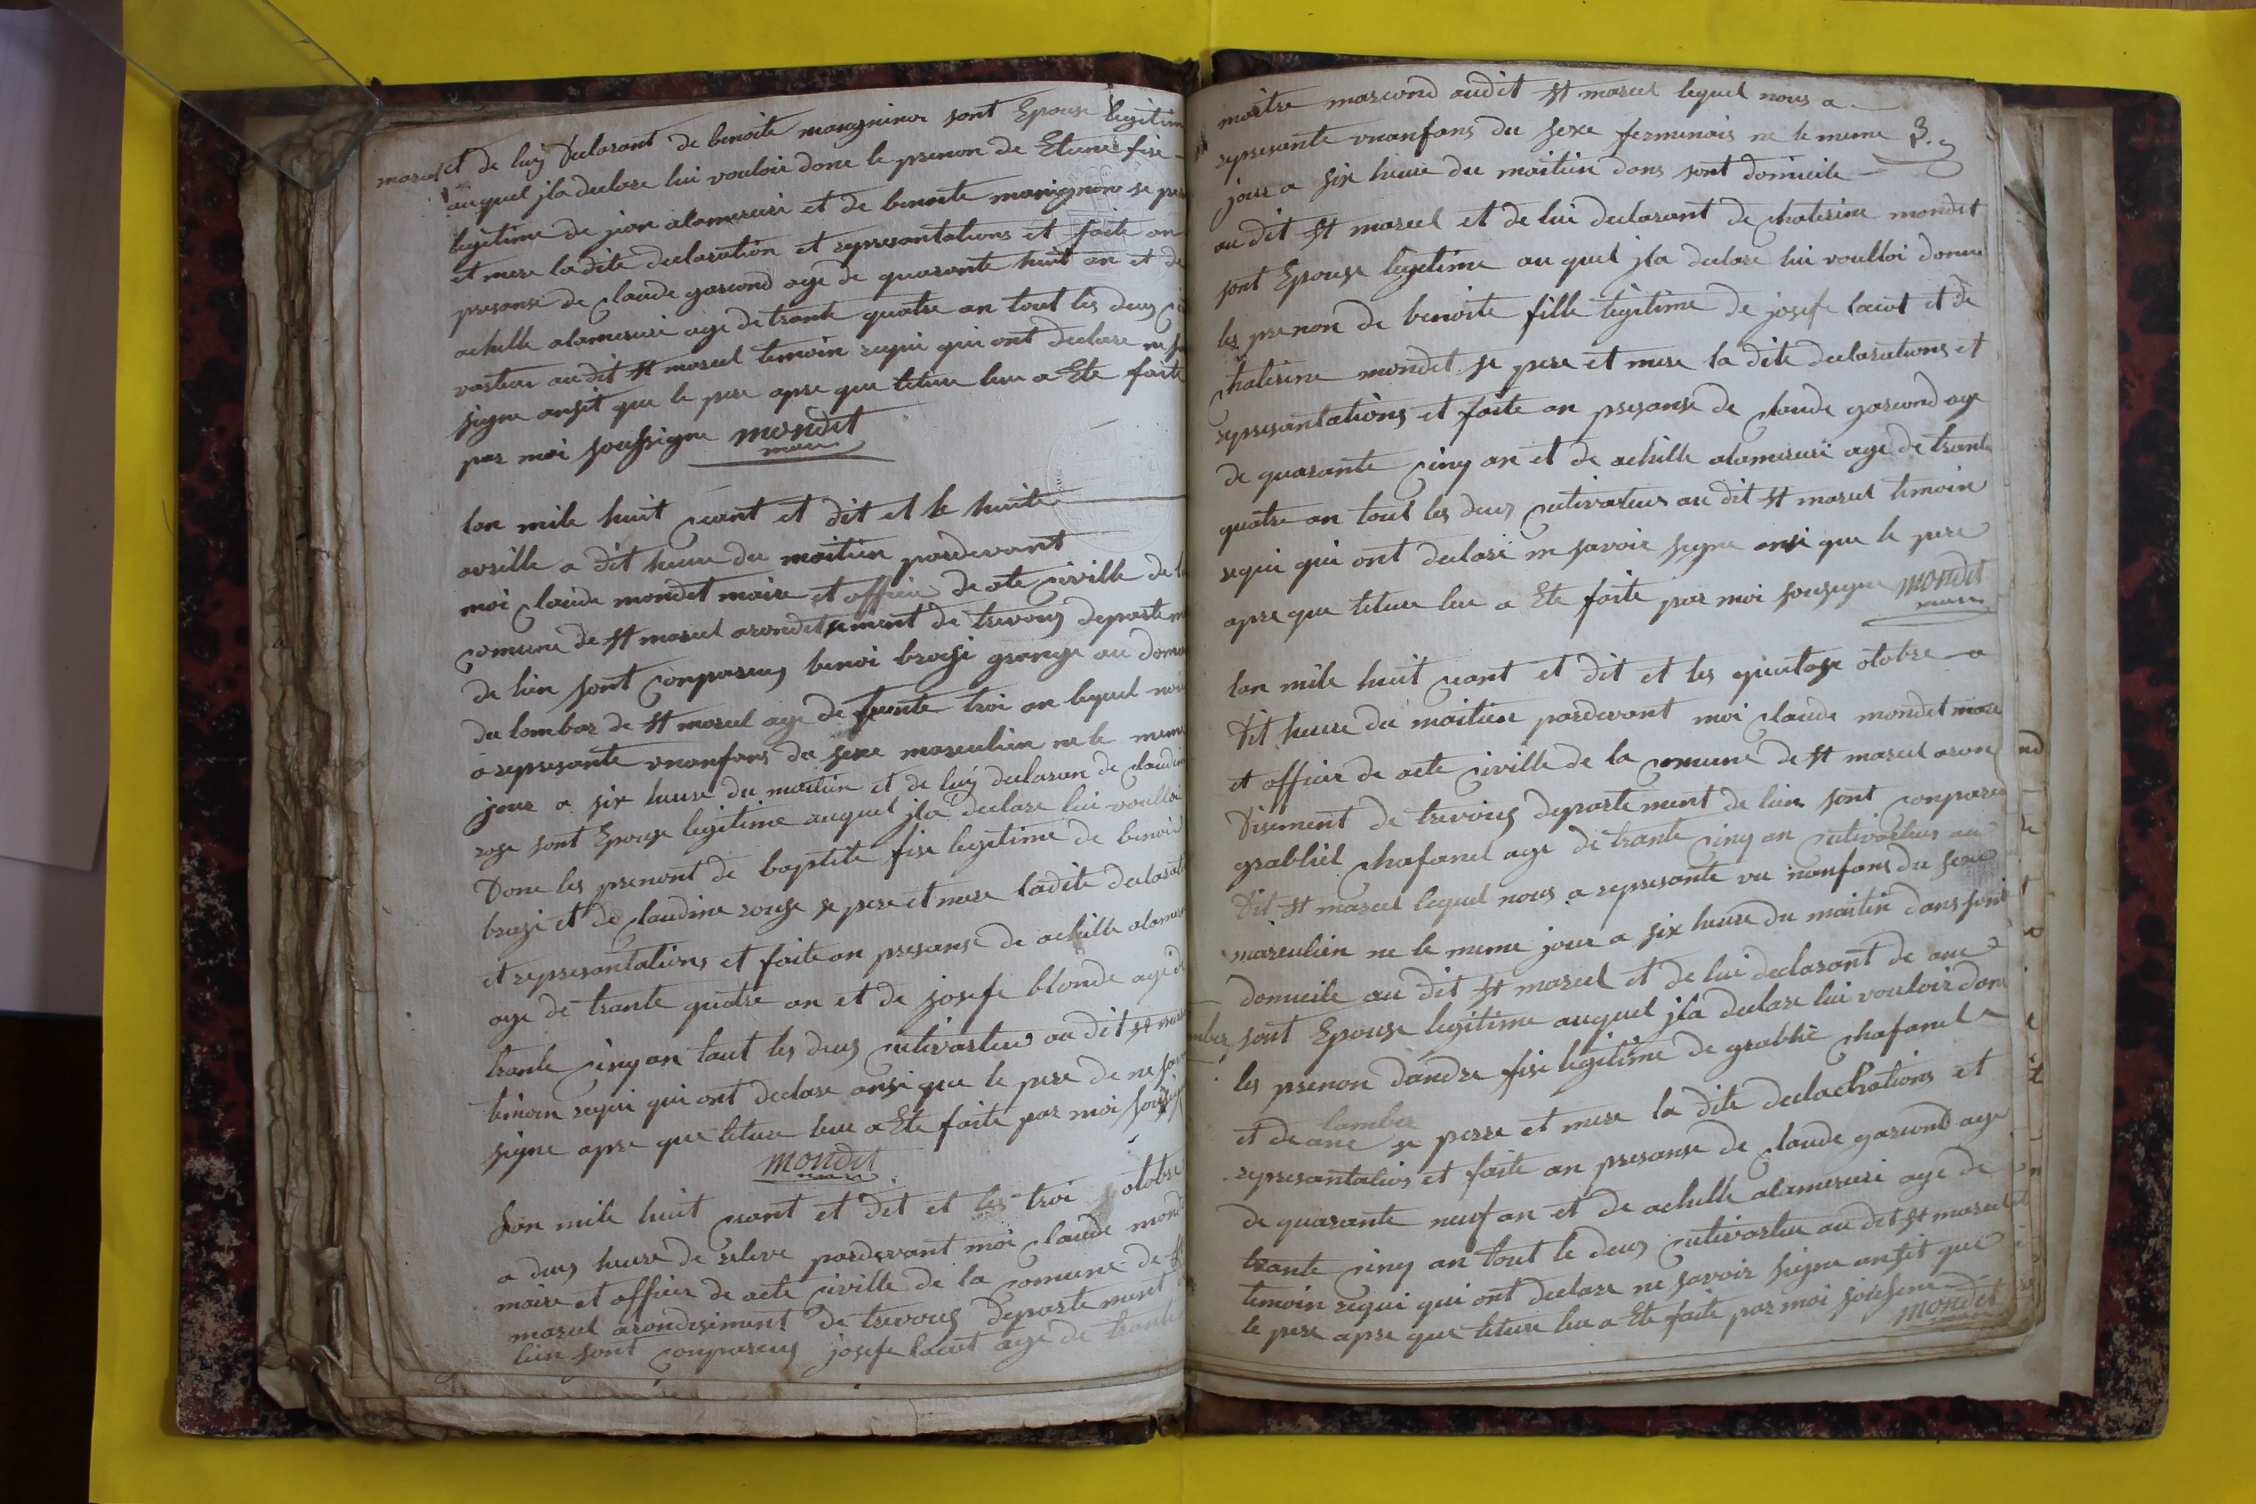 marcel et de luy declarant de benoite manigninon sont Epouse legitim
auquel jla declare lui vouloir done le prenon de Etiene fise
legitime de jean alamerceri et de benoite manignon se per
et mere ladite declaration et representations et faite an
presanse de claude gascond age de quarante huit an et de
achille alamerceri age de trante quatre an tout les deus
au dit st marcel temoin requi qui ont declare ne
signe ansit que le pere apre que leture leu a Ete faite
par moi soussigne mondet
maire
lan mile huit cant et dit et le huite
avrille a dit heure du maitien pardevant
moi claude mondet maire et officie de ate civille de
comune de st marcel arondetsement de trevous departem
de lien sont conpareus benoi brosi grange au doma
du lombar de st marcel age de trente troi an lequel nou
a represante unanfans du sexe masculien ne le meme
jour a six heure du maitien et de luy declaran de claudin
roge sont Epouse legitime auquel jla declare lui voulloi
Done les prenont de baptite fise legitime de benoi
brosi et de claudine rouge se pere et mere ladite declarat
et representations et faite an presanse de achille alamer
age de trante quatre an et de josefe blonde age d
trante cinq an tout les deus cutivasteur au dit st marc
temoin requi qui ont declare ansi que le pere de ne sav
signe apre que leture leu a Ete faite par moi soussig
mondet
maire
Lan mile huit cant et dit et les troi otobre
a deus heure de releve pardevant moi claude mond
maire et officier de acte civille de la comune de st
marcel arondisiment de trevous departement
lien sont conpareus josefe lacot age de trante
maitre mascond audit st marcel lequel nous a
represante unanfans du sexe ferminois ne le meme 3.
jour a six heure du maitien dans sont domicile
au dit st marcel et de lui declarant de chaterine mondet
sont Epouse legitime au quel jla declare lui voulloi donne
les prenon de benoite fille legitime de josefe lacot et de
chaterine mondet se pere et mere la dite declarations et
represantations et faite an presanse de claude gascond age
de quarante cinq an et de achille alamerceri age de trante
quatre an tout les deus cutivasteurs au dit st marcel temoin
requi qui ont declare ne savoir signe ansi que le pere
apre que leture leu a Ete faite par moi sousigne mondet
maire
lan mile huit cant et dit et les quatose otobre a
Dit heure du maitien pardevant moi claude mondet maire
et officier de acte civille de la comune de st marcel aron
Disement de trevous departement de lien sont conpareu
grabliel chafanel age de trante cinq an cutivasteur au
Dit st marcel lequel nous a represante un nanfans du sexe
masculien ne le meme jour a six heure du maitin dans sont
domicile au dit st marcel et de lui declarant de ane
sont Epouse legitime auquel jla declare lui vouloir don
les prenon dandre fise legitime de grablie chafanel
lomber
et de ane se perre et mere la dite declachations et
represantations et faite an presanse de claude gascond age
de quarante neuf an et de achille alamerceri age de
trante cinq an tout le deus cutivasteu au dit st marcel
temoin requi qui ont declare ne savoir signe ansit que
le pere apre que leture leu a Ete faite par moi sousigne
mondet